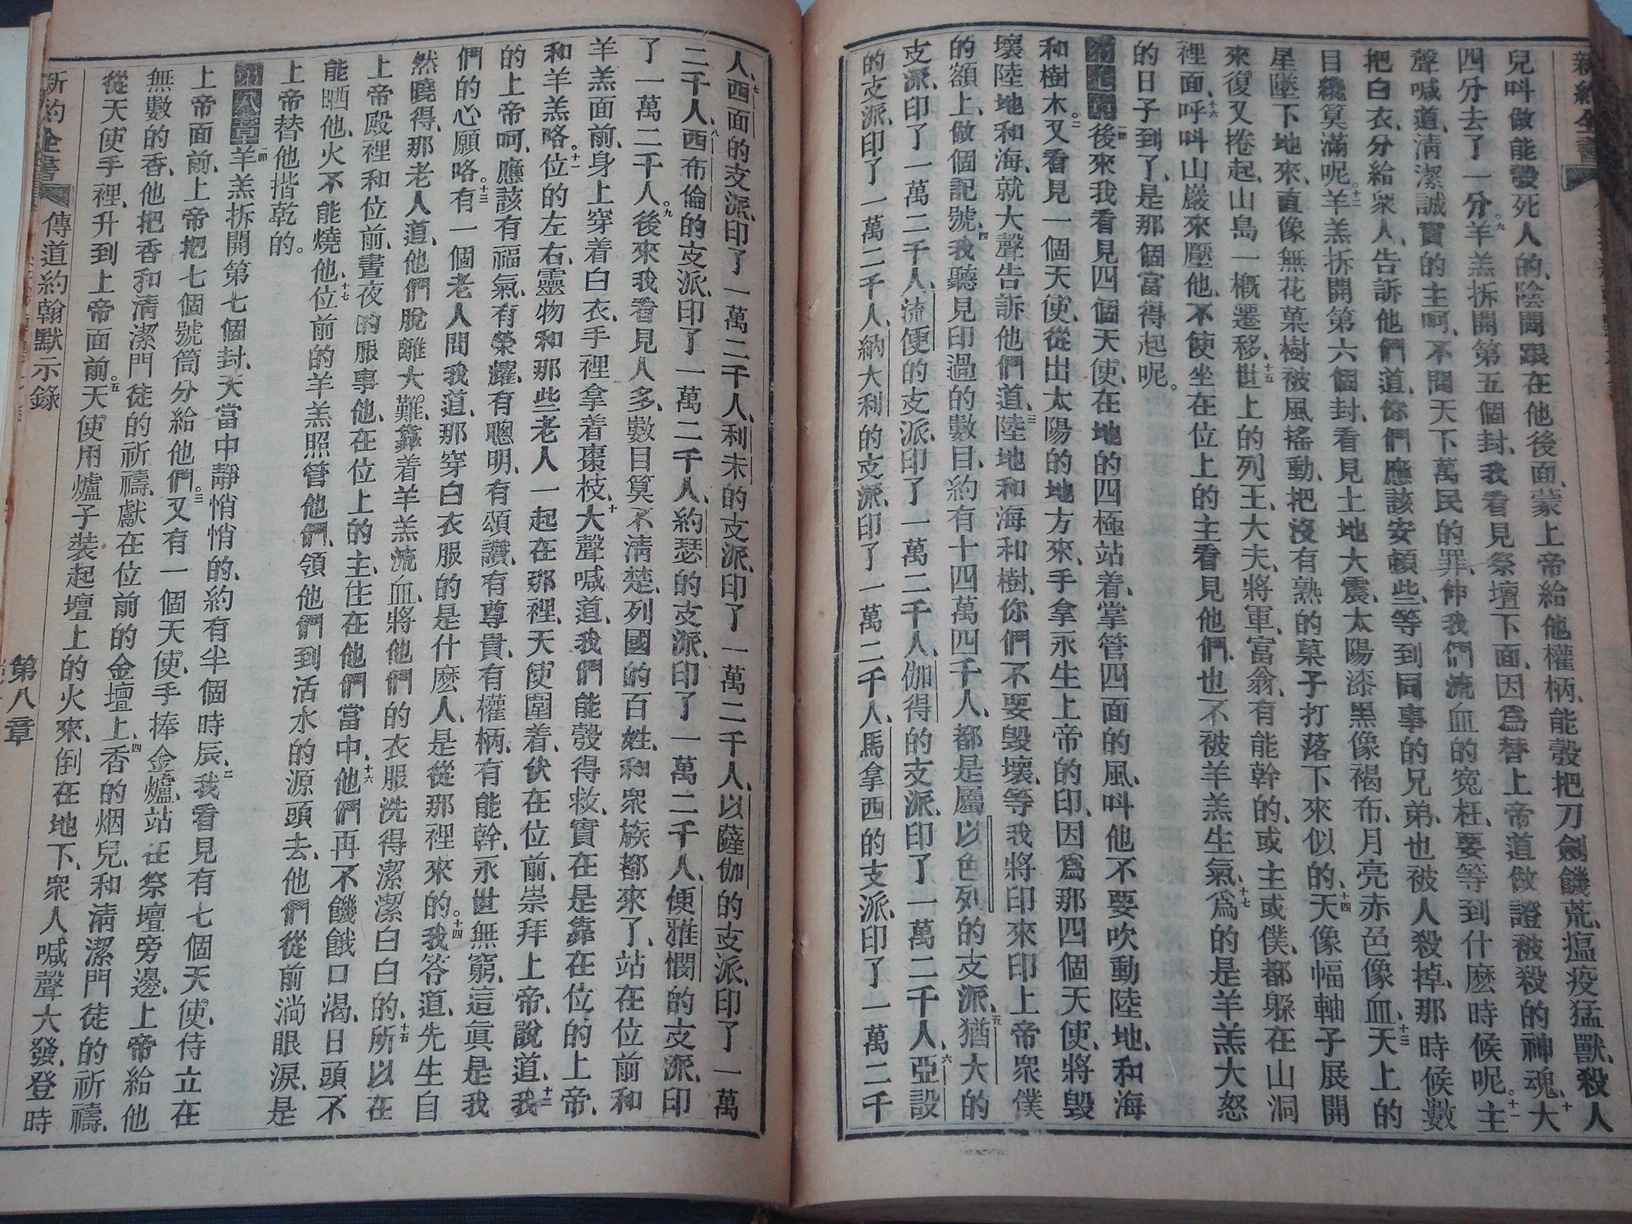 新約全書
兒叫做能彀死人的、陰間跟在他後面、蒙上帝給他權柄、能彀把刀劍饑荒、瘟疫猛獸、殺人
四分去了一分。九羊羔拆開第五個封、我看見祭壇下面、因爲替上帝道做證被殺的神魂、十大
聲喊道、淸潔誠實的主呵、不問天下萬民的罪、伸我們流血的寃枉、要等到什麽時候呢。十一主
把白衣、分給衆人、告訴他們道、你們應該安頓些、等到同事的兄弟、也被人殺掉、那時候數
目纔算滿呢。十二羊羔拆開第六個封、看見土地大震、太陽漆黑像褐布、月亮赤色像血、十三天上的
星墜下地來、直像無花菓樹被風搖動、把沒有熟的菓子打落下來似的、十四天像幅軸子展開
來復又捲起、山島一槪遷移、十五世上的列王、大夫、將軍、富翁、有能幹的、或主或僕、都躱在山洞
裡面、十六呼叫山巖來壓他、不使坐在位上的主看見他們、也不被羊羔生氣、十七爲的是羊羔大怒
的日子到了、是那個當得起呢。
第七章一節後來我看見四個天使、在地的四極站着、掌管四面的風、叫他不要吹動陸地、和海
和樹木、二又看見一個天使、從出太陽的地方來、手拿永生上帝的印、因爲那四個天使、將毀
壞陸地和海、就大聲告訴他們道、三陸地和海和樹、你們不要毀壞、等我將印來印上帝衆僕
的額上、做個記號、四我聽見印過的數目、約有十四萬四千人、都是屬以色列的支派、五猶大的
支派、印了一萬二千人、流便的支派、印了一萬二千人、伽得的支派、印了一萬二千人、六亞設
的支派、印了一萬二千人、納大利的支派、印了一萬二千人、馬拿西的支派、印了一萬二千
人、七西面的支派、印了一萬二千人、利未的支派、印了一萬二千人、以薩伽的支派、印了一萬
二千人、八西布倫的支派、印了一萬二千人、約瑟的支派、印了一萬二千人、便雅憫的支派、印
了一萬二千人。九後來我看見人多、數目算不淸楚、列國的百姓、和衆族都來了、站在位前和
羊羔面前、身上穿着白衣、手裡拿着棗枝、十大聲喊道、我們能彀得救、實在是靠在位的上帝、
和羊羔略、十一位的左右、靈物和那些老人一起在那裡、天使圍着、伏在位前、崇拜上帝、說道、十二我
的上帝呵、應該有福氣、有榮耀、有聰明、有頌讚、有尊貴、有權柄、有能幹、永世無窮、這眞是我
們的心願略。十三有一個老人問我道、那穿白衣服的是什麽人、是從那裡來的。十四我答道、先生自
然曉得、那老人道、他們脫離大難、靠着羊羔流血、將他們的衣服洗得潔潔白白的、十五所以在
上帝殿裡和位前、晝夜的服事他、在位上的主、住在他們當中、十六他們再不饑餓口渴、日頭不
能晒他、火不能燒他、十七位前的羊羔照管他們、領他們到活水的源頭去、他們從前淌眼淚、是
上帝替他揩乾的。
第八章一節羊羔拆開第七個封、天當中靜悄悄的、約有半個時辰、二我看見有七個天使、侍立在
上帝面前、上帝把七個號筒分給他們。三又有一個天使、手捧金爐、站在祭壇旁邊、上帝給他
無數的香、他把香和淸潔門徒的祈禱、獻在位前的金壇上、四香的烟兒、和淸潔門徒的祈禱、
從天使手裡、升到上帝面前。五天使用爐子裝起壇上的火來、倒在地下、衆人喊聲大發、登時
新約全書 傳道約翰默示錄 第八章